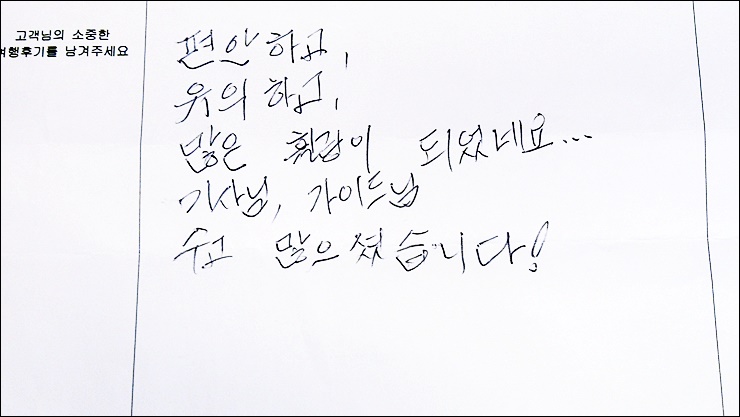 고객님의 소중한
여행후기를 남겨주세요
편안하고,
유의하고,
많은 되었네요...
기사님, 가이드님
수고 많으셨습니다!